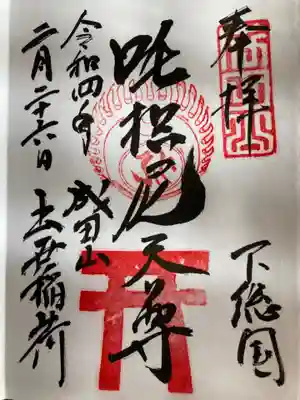 奉拝
下総国
吒枳尼天尊
令和四年
成田山
二月二十六日
出世稲荷